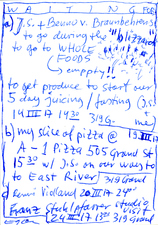 WAITING FOR
a) J.S. + Benno v. Braunbehrens
to go during the "blizzard"
to go to WHOLE
(FOODS
empty!!)
to get produce to start our
5 day juicing / fasting
14 III 17 1430 319 G.
b) my slice of pizza @
A-1 Pizza 505 Grand St
1530 w/ J.S. on our way to
to East River 319 Grand
20 III 17
Franz studio
visit
24 III 17 1301 319 Grand